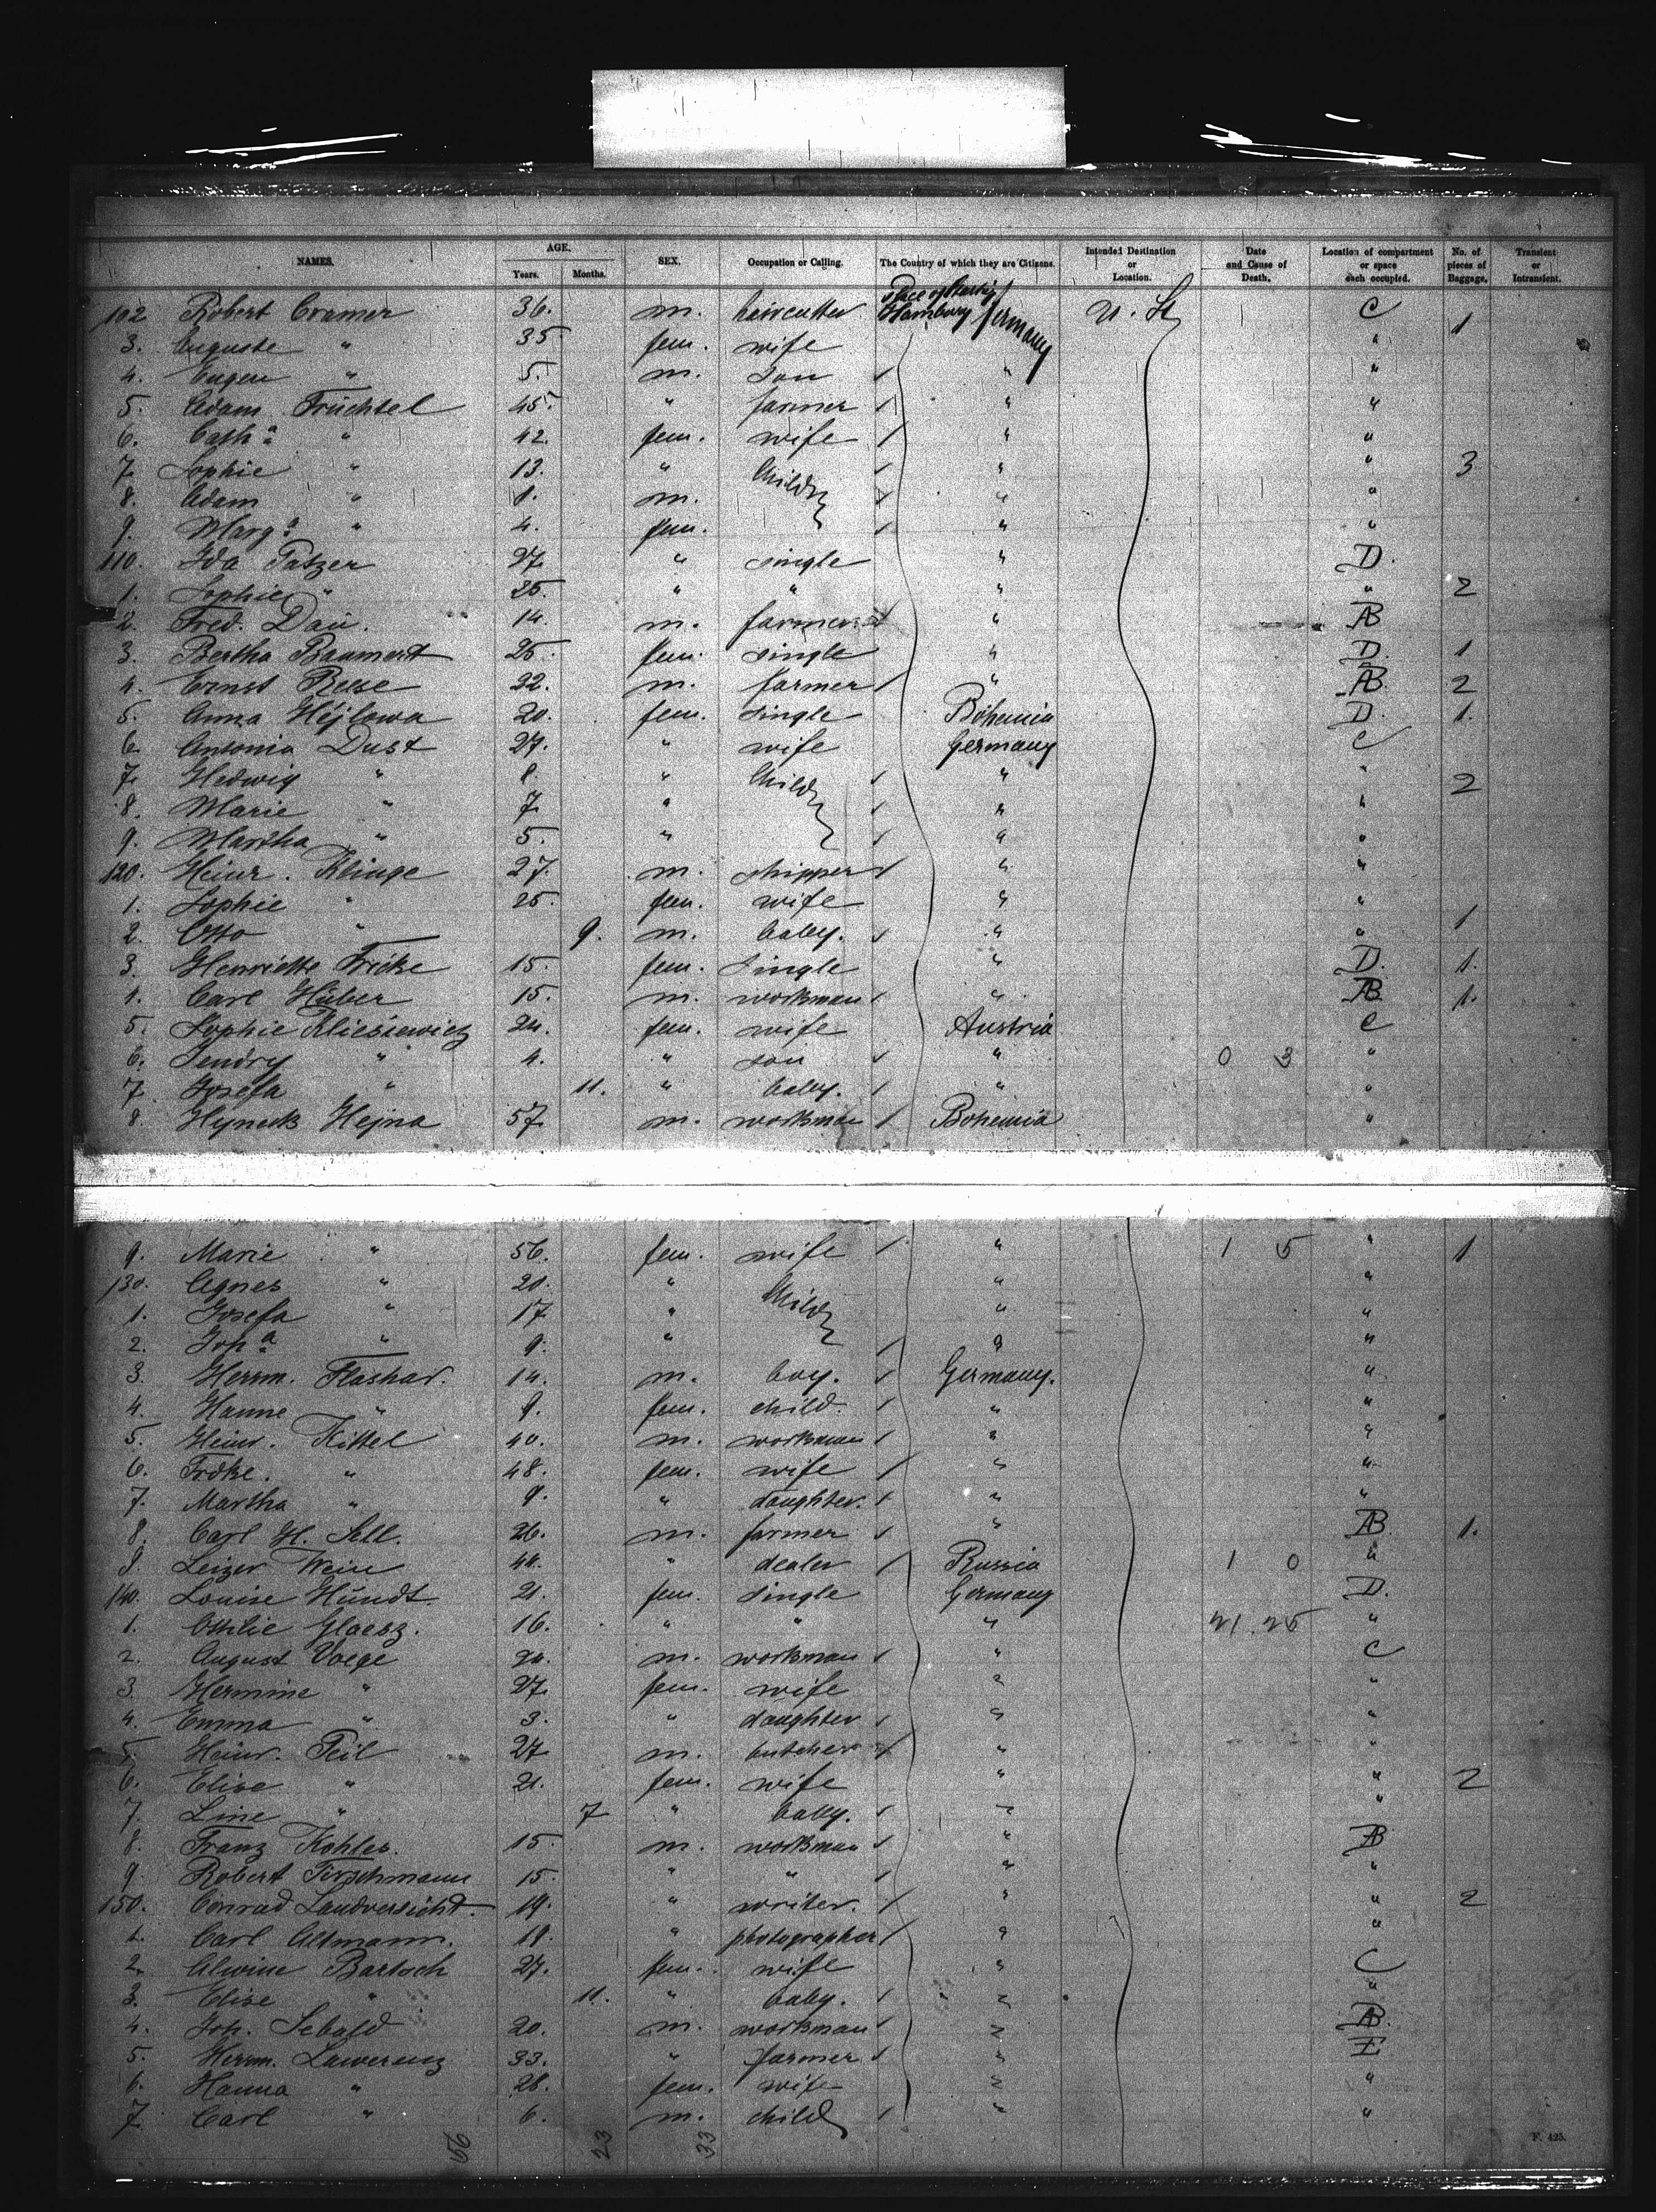 NAMES. AGE. Years. Months. SEX. Occupation or Calling. The Country of which they are Citizens. Intended Destination or Location. Date and Cause of Death. Location of compartment or space each occupied. No. of pieces of Baggage. Transient or Intransient.
102 Robert Cramer 36. m. haircutter Place of Starting Hamburg Germany U. St. C
3. Auguste " 35 fem. wife " 1
4. Eugen " 5. m. son " "
5. Adam Früchtel 45. " farmer " "
6. Cath.a " 42. fem. wife " "
7. Sophie " 13. " Child " " 3
8. Adam " 8. m. " "
9. Marg.a " 4. fem. " "
110. Ida Patzer 27. " single " D.
1. Sophie " 25. " " " " 2
2. Fred. Daü. 14. m. farmer. " AB
3. Bertha 25. fem. single " D. 1
4. Ernst Reese 22. m. farmer " AB. 2
5. Anna Héjlowa 20. fem. single Bohemia D. 1.
6. Antonia Dust 27. " wife Germany C
7. Hedwig " 8. " Child " " 2
8. Marie " 7. " " "
9. Martha " 5. " " "
120. Heinr. Klinge 27. m. shipper " "
1. Sophie " 25. fem. wife " "
2. Otto " 9. m. baby. " " 1
3. Henriette Fricke 15. fem. single " D. 1.
4. Carl Hüber 15. m. workman " AB 1.
5. Sophie Kliesiewicz 24. fem. wife Austria C
6. Jendry " 4. " son " 0 3 "
7. Josefa " 11. " baby. " "
8. Hyneck Hejna 57. m. workman Bohemia "
9. Marie " 56. fem. wife " 1 5 " 1
130. Agnes " 20. " Child " "
1. Josefa " 17. " " "
2. Joh.a " 9. " " "
3. Herrm. Flashar. 14. m. boy. Germany. "
4. Hanne " 9. fem. child. " "
5. Heinr. Kittel 40. m. workman " "
6. Frdke. " 48. fem. wife " "
7. Martha " 9. " daughter. " "
8. Carl H. Sell. 26. m. farmer " AB. 1.
9. Leizer Wein 44. " dealer Russia 1 0 "
140. Louise Hündt. 21. fem. single Germany D.
1. Ottilie Glaesz. 16. " " " 21.25 "
2. August Voege 24. m. workman " C
3. Hermine " 27. fem. wife " "
4. Emma " 3. " daughter " "
5. Heinr. Peil 27. m. butcher " "
6. Elise " 21. fem. wife " " 2
7. Line " 7 " baby. " "
8. Franz Kohler. 15. m. workman " AB
9. Robert Tirschmann 15. " " " "
150. Conrad Landversicht. 19. " writer. " " 2
1. Carl Altmann. 19. " photographer " "
2. Alwine Bartoch 27. fem. wife " C
3. Elise " 11. " baby. " "
4. Joh. Sebald 20. m. workman " AB.
5. Herrm. Lawerenz 33. " farmer " E
6. Hanna " 28. fem. wife " "
7. Carl " 6. m. child " "
56 23 33
F. 425.